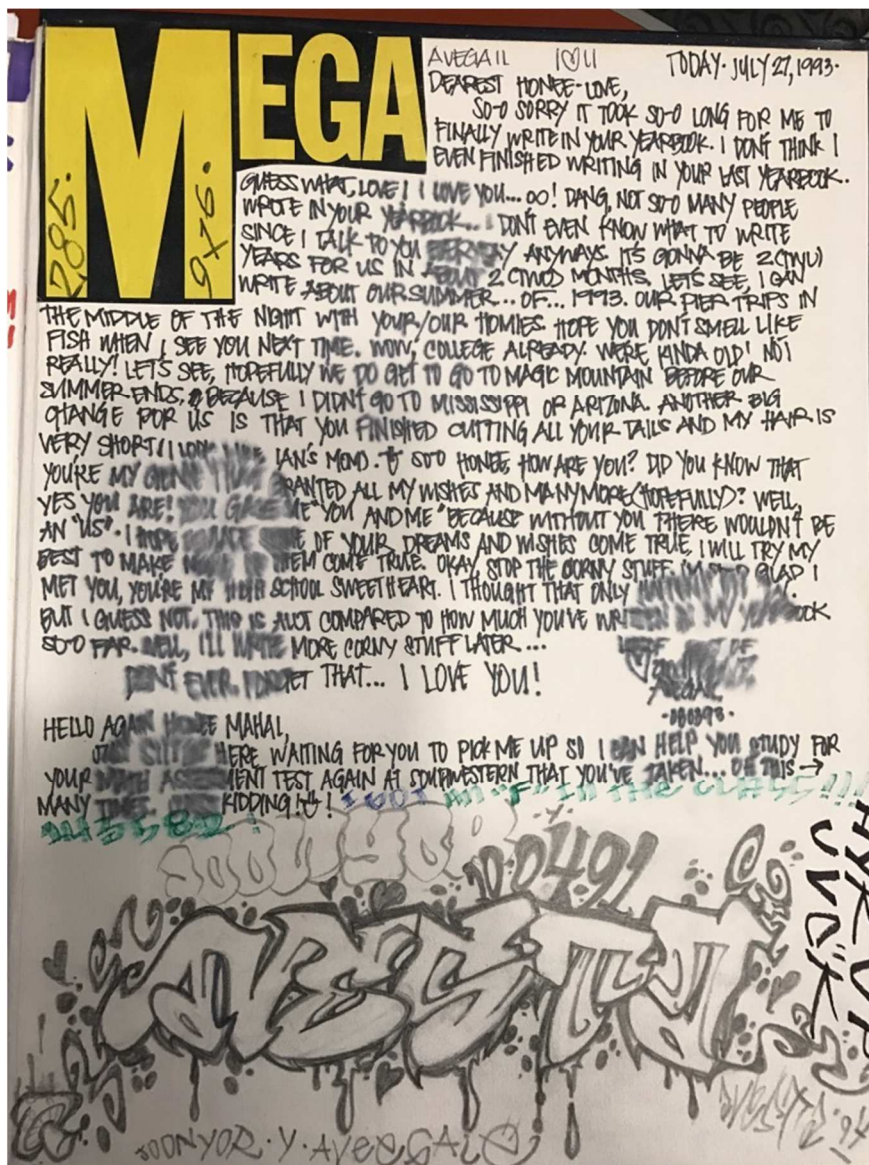 MEGA
285.
9x6.
AVEGAIL I ♡ U TODAY. JULY 27, 1993.
DEAREST HONEE-LOVE,
SO-O SORRY IT TOOK SO-O LONG FOR ME TO
FINALLY WRITE IN YOUR YEARBOOK. I DON'T THINK I
EVEN FINISHED WRITING IN YOUR LAST YEARBOOK..
GUESS WHAT, LOVE! I LOVE YOU... OO! DANG, NOT SO-O MANY PEOPLE
WRITE IN YOUR YEARBOOK... I DON'T EVEN KNOW WHAT TO WRITE
SINCE I TALK TO YOU EVERYDAY ANYWAYS. IT'S GONNA BE 2 (TWO)
YEARS FOR US IN ABOUT 2 (TWO) MONTHS. LET'S SEE, I CAN
WRITE ABOUT OUR SUMMER... OF... 1993. OUR PIER TRIPS IN
THE MIDDLE OF THE NIGHT WITH YOUR/OUR HOMIES. HOPE YOU DON'T SMELL LIKE
FISH WHEN I SEE YOU NEXT TIME. WOW, COLLEGE ALREADY. WE'RE KINDA OLD! NOT
REALLY! LET'S SEE, HOPEFULLY WE DO GET TO GO TO MAGIC MOUNTAIN BEFORE OUR
SUMMER ENDS, BECAUSE I DIDN'T GO TO MISSISSIPPI OR ARIZONA. ANOTHER BIG
CHANGE FOR US IS THAT YOU FINISHED CUTTING ALL YOUR TAILS AND MY HAIR IS
VERY SHORT! I LOOK LIKE IAN'S MOM. SO-O HONEE, HOW ARE YOU? DID YOU KNOW THAT
YOU'RE MY GRANTED ALL MY WISHES AND MANY MORE (HOPEFULLY)? WELL,
YES YOU ARE! YOU GAVE ME "YOU AND ME" BECAUSE WITHOUT YOU THERE WOULDN'T BE
AN "US". I HOPE OF YOUR DREAMS AND WISHES COME TRUE, I WILL TRY MY
BEST TO MAKE THEM COME TRUE. OKAY, STOP THE CORNY STUFF. GLAD I
MET YOU, YOU'RE MY HIGH SCHOOL SWEETHEART. I THOUGHT THAT ONLY
BUT I GUESS NOT. THIS IS ALOT COMPARED TO HOW MUCH YOU'VE WRITTEN IN MY YEARBOOK
SO-O FAR. WELL, I'LL WRITE MORE CORNY STUFF LATER...
DON'T EVER FORGET THAT... I LOVE YOU!
HELLO AGAIN HONEE MAHAL,
HERE WAITING FOR YOU TO PICK ME UP SO I CAN HELP YOU STUDY FOR
YOUR MATH ASSESSMENT TEST AGAIN AT SOUTHWESTERN THAT YOU'VE TAKEN... OH THIS →
MANY TIMES. KIDDING! I GOT AN "F" IN THE CLASS!!!
JOONYOR
100491
JOONYOR . Y . AVEEGALE